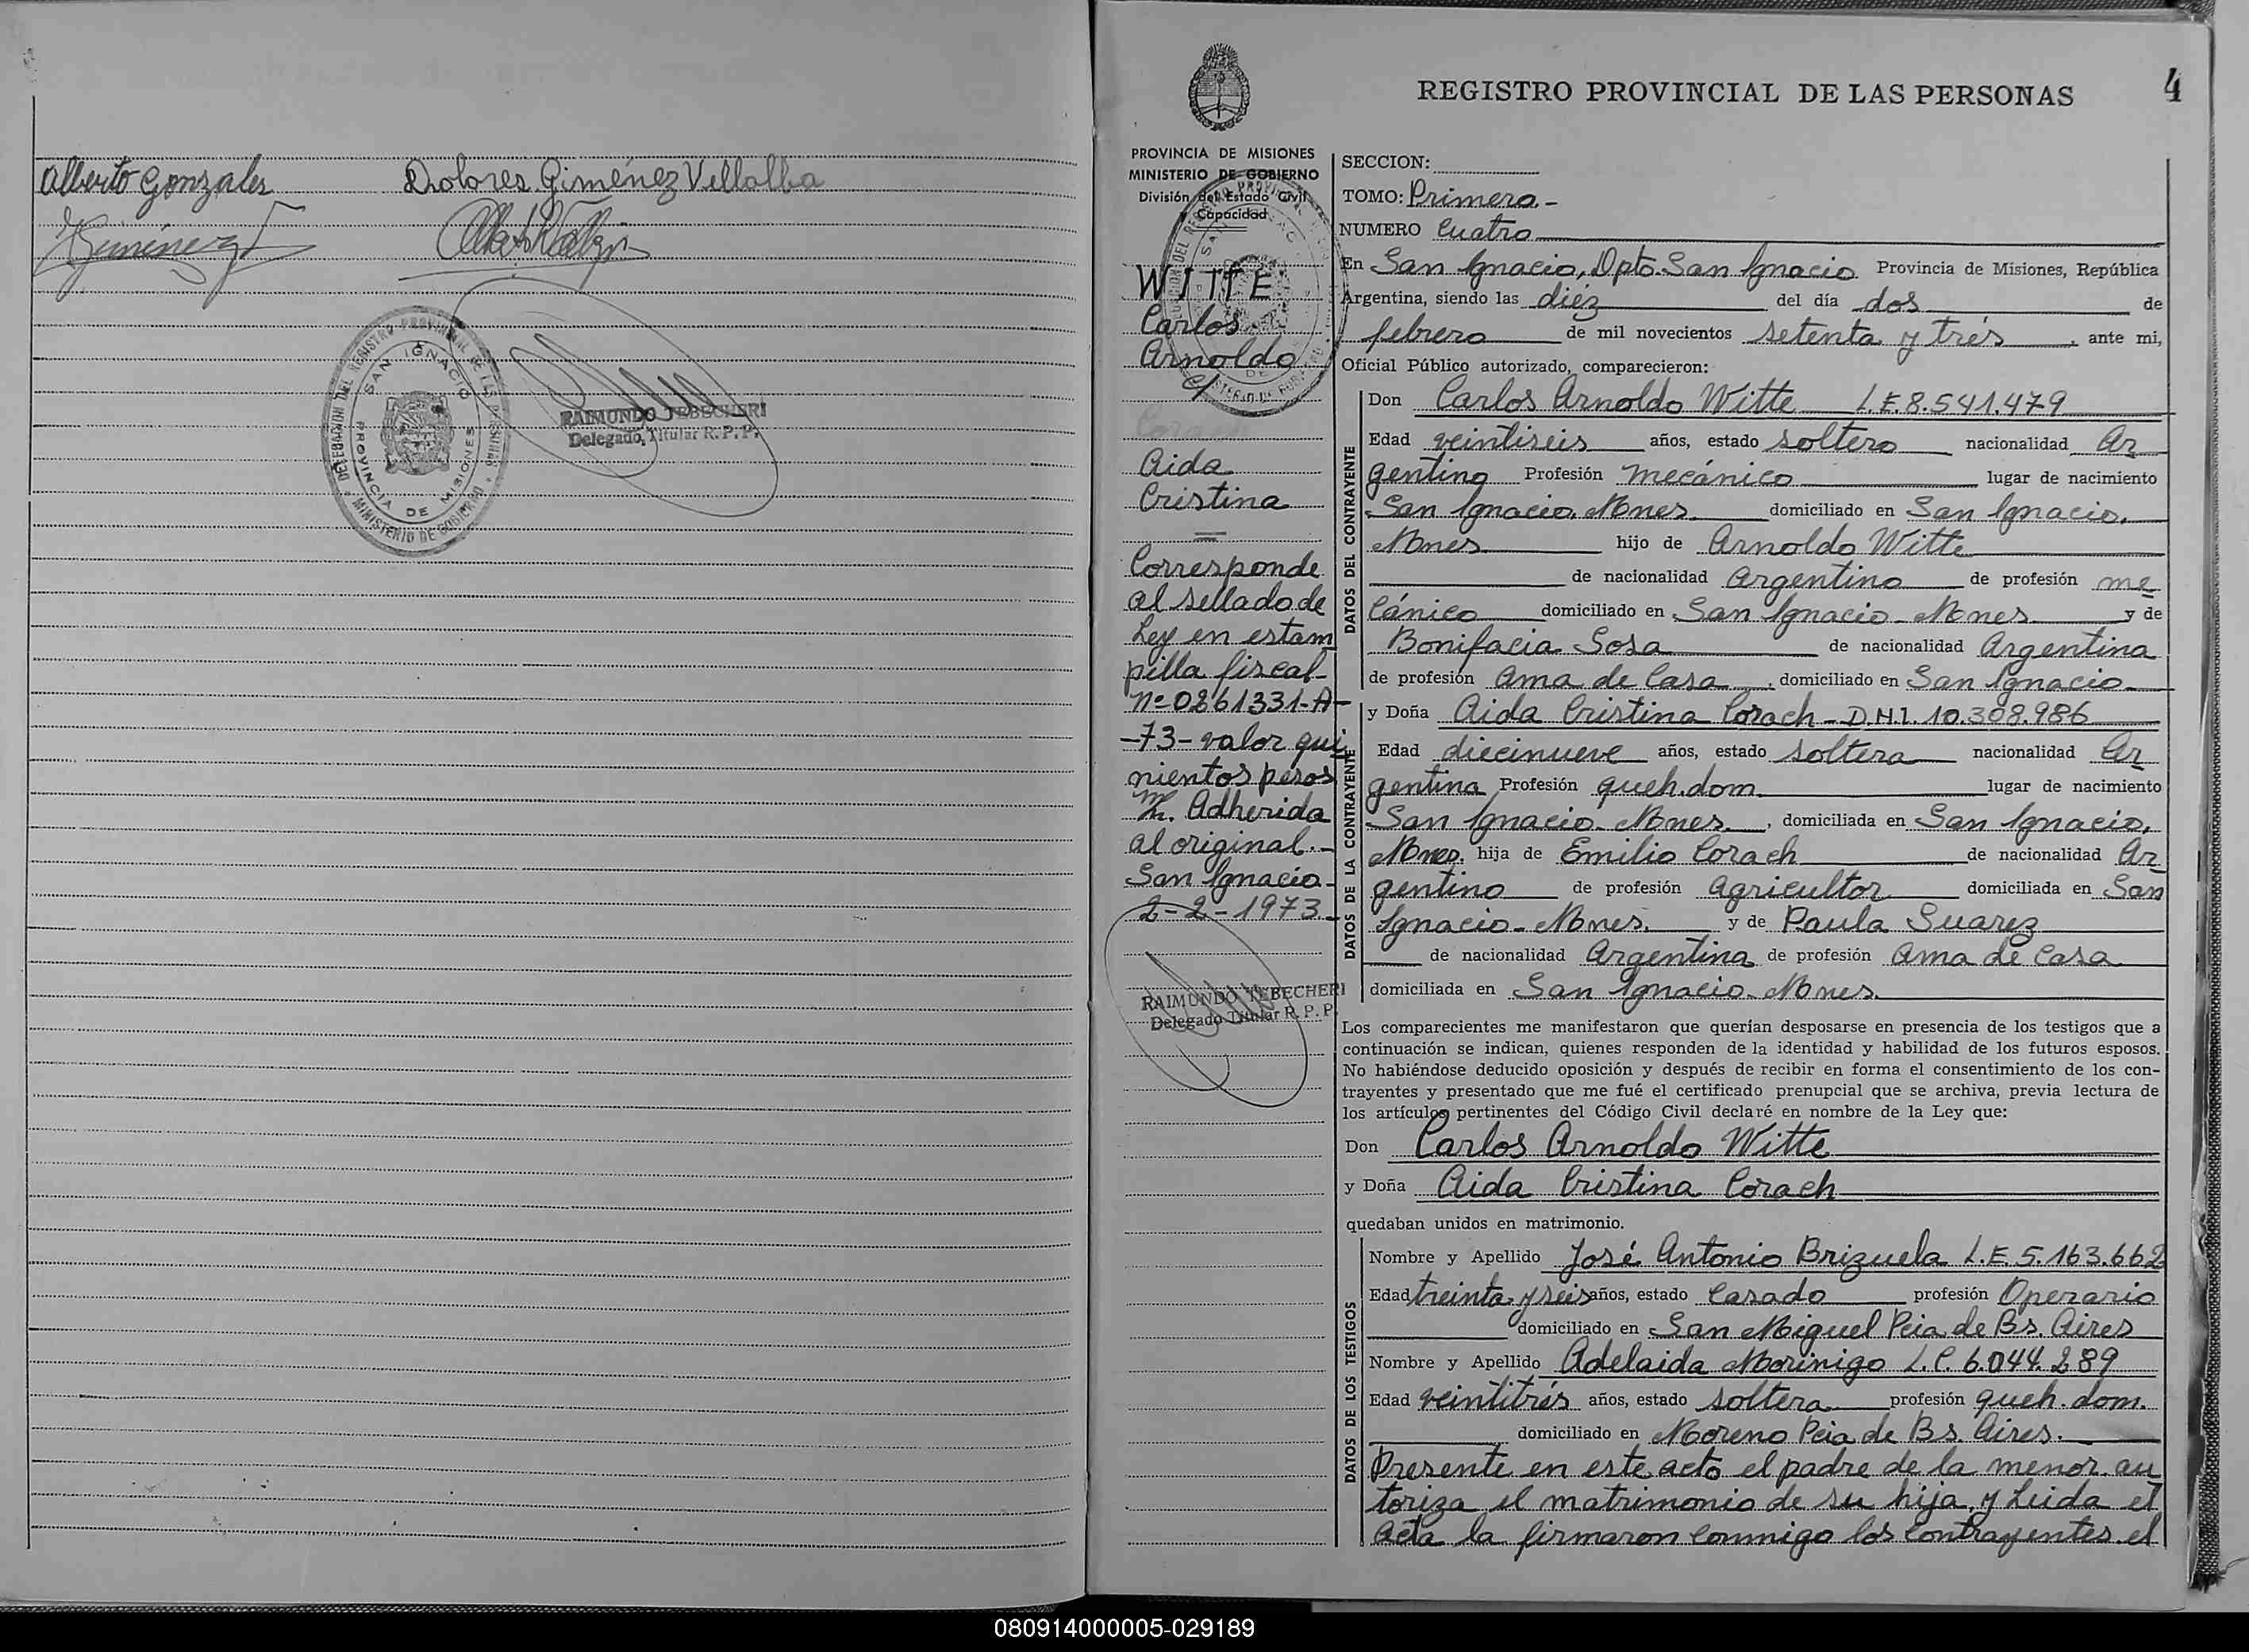 Alberto Gonzales Dolores Giménez Villalba
Giménez
DELEGACION DEL REGISTRO PROVINCIAL DE LAS PERSONAS
SAN IGNACIO
PROVINCIA DE MISIONES
MINISTERIO DE GOBIERNO
RAIMUNDO TEBECHERI
Delegado Titular R. P. P.
REGISTRO PROVINCIAL DE LAS PERSONAS 4
PROVINCIA DE MISIONES
MINISTERIO DE GOBIERNO
División del Estado Civil
y Capacidad
WITTE
Carlos
Arnoldo
c/
Corach
Aida
Cristina
=
Corresponde
al sellado de
Ley en estam
pilla fiscal-
Nº 0861331-A-
-73- valor qui
nientos pesos
m/n. Adherida
al original.-
San Ignacio-
2-2-1973.-
RAIMUNDO TEBECHERI
Delegado Titular R. P. P.
SECCION:
TOMO: Primero.-
NUMERO Cuatro
En San Ignacio, Dpto. San Ignacio Provincia de Misiones, República
Argentina, siendo las diéz del día dos de
febrero de mil novecientos setenta y trés, ante mi,
Oficial Público autorizado, comparecieron:
DATOS DEL CONTRAYENTE
Don Carlos Arnoldo Witte L.E. 8.541.479
Edad veintiseis años, estado soltero nacionalidad Ar
gentino Profesión mecánico lugar de nacimiento
San Ignacio, Mnes. domiciliado en San Ignacio,
Mnes hijo de Arnoldo Witte
de nacionalidad Argentino de profesión me
cánico domiciliado en San Ignacio- Mnes. y de
Bonifacia Sosa de nacionalidad Argentina
de profesión Ama de Casa, domiciliado en San Ignacio
DATOS DE LA CONTRAYENTE
y Doña Aida Cristina Corach- D.N.I. 10.308.986
Edad diecinueve años, estado soltera nacionalidad Ar
gentina Profesión queh. dom. lugar de nacimiento
San Ignacio- Mnes., domiciliada en San Ignacio,
Mnes. hija de Emilio Corach de nacionalidad Ar
gentino de profesión Agricultor domiciliada en San
Ignacio- Mnes. y de Paula Suarez
de nacionalidad Argentina de profesión Ama de Casa
domiciliada en San Ignacio- Mnes.
Los comparecientes me manifestaron que querían desposarse en presencia de los testigos que a
continuación se indican, quienes responden de la identidad y habilidad de los futuros esposos.
No habiéndose deducido oposición y después de recibir en forma el consentimiento de los con-
trayentes y presentado que me fué el certificado prenupcial que se archiva, previa lectura de
los artículos pertinentes del Código Civil declaré en nombre de la Ley que:
Don Carlos Arnoldo Witte
y Doña Aida Cristina Corach
quedaban unidos en matrimonio.
DATOS DE LOS TESTIGOS
Nombre y Apellido José Antonio Brizuela L.E. 5.163.662
Edad treinta y seis años, estado Casado profesión Operario
domiciliado en San Miguel Pcia. de Bs. Aires
Nombre y Apellido Adelaida Morinigo L.C. 6.044.289
Edad veintitrés años, estado soltera profesión queh. dom.
domiciliado en Moreno Pcia de Bs. Aires.
Presente en este acto el padre de la menor au
toriza el matrimonio de su hija, y Leida el
Acta la firmaron conmigo los contrayentes el
080914000005-029189